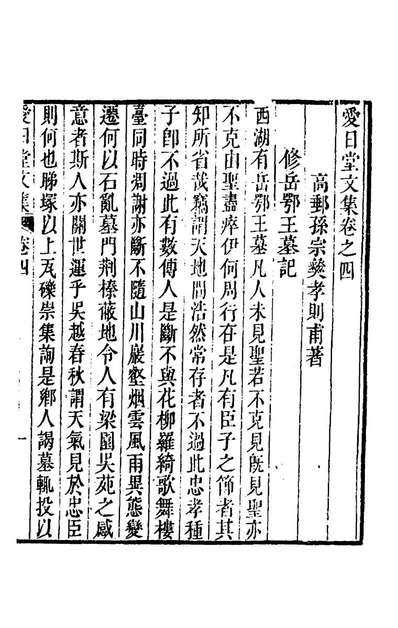 愛日堂文集卷之四
高郵孫宗彜孝則甫著
修岳鄂王墓記
西湖有岳鄂王墓凡人未見聖若不克見既見聖亦
不克由聖盡瘁伊何周行在是凡有臣子之篩者其
知所省哉竊謂天地間浩然常存者不過此忠孝種
子卽不過此有數傳人是斷不與花柳羅綺歌舞樓
臺同時凋謝亦斷不隨山川巖壑烟雲風雨異態變
遷何以石亂墓門荆榛蔽地令人有梁園吳苑之感
意者斯人亦關世運乎吳越春秋謂天氣見於忠臣
則何也睇塚以上瓦礫崇集詢是鄉人謁墓輒投以
愛日堂文集 卷四 一